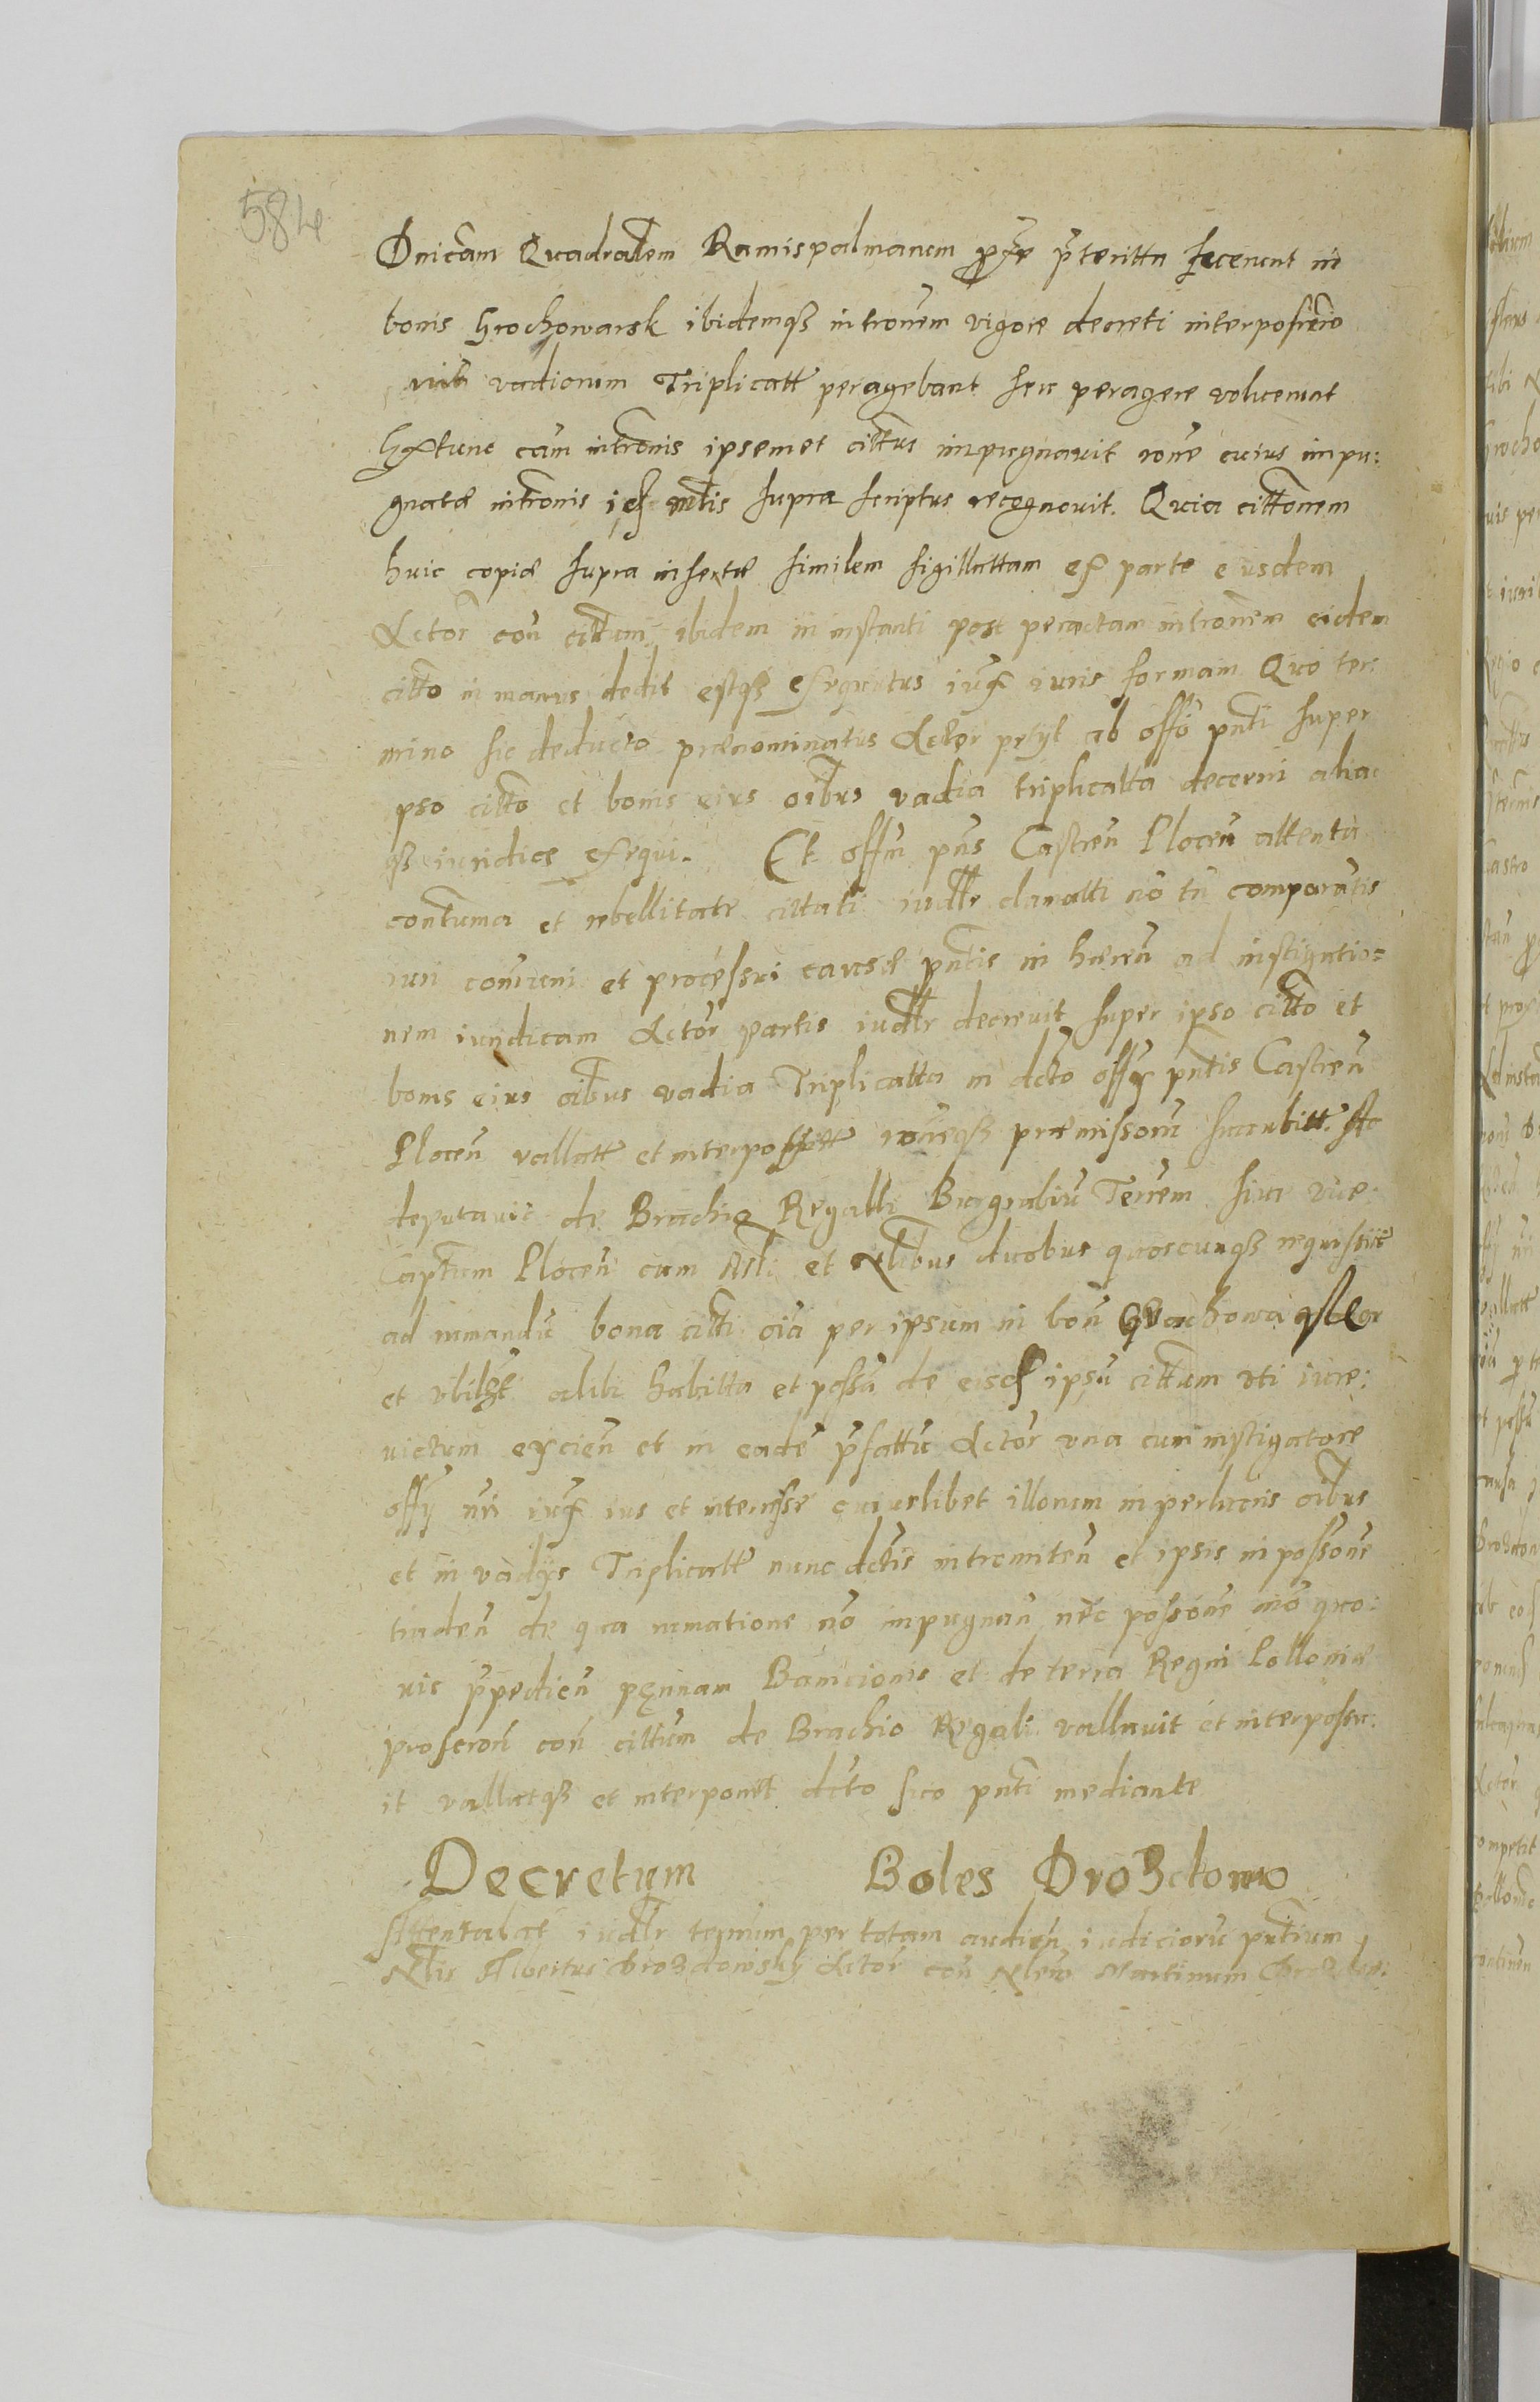 584
Dnicam Quadralem Ramispalmarum prox pteritta fecerunt in
bonis Grochowarsk ibidemqz intronem vigore decreti
vadiorum Triplicatt peragebant seu peragere voluerunt
Extunc eam intronis ipsemet cittus impugnavit rone cuius impu:
gnatæ intronis supra scriptus recognovit. Quia cittonem
huic copiæ supra insertæ similem sigillattam ex parte eiusdem
Actor con cittum ibidem in instanti post peractam intronem eidem
citto in manus dedit estqz exequutus iux iuris formam Quo ter
mino sic deducto prænominatus Actor petyt ab offo pnti super
ipso citto et bonis eius oibus vadia triplicatta decerni alia
qz iuridice exequi. Et offm pns Castren Plocen attenta
contuma et rebellitate cittati iudlr clamatti no tn comparentis
iuri comuni et processui causæ pntis in hæren ad instigatio=
nem iuridicam Actor partis iudlr decrevit super ipso citto et
bonis eius oibus vadia Triplicatta in dcto offo pntis Castren
Plocen vallatt et interpositt roneqz præmissoru
deputavit de Brachio Regalli Burgrabiu Terrem sive vice
Captum Plocen cum Mli et Nlibus duobus quoscunqz
ad rumandu bona citti oia per ipsum in bon Grochowarsk
et ubilzt alibi habitta et possa de eisd ipsu cittum uti iure:
victum exicien et in eade pfattu Actor una cum instigatore
offy nri iux ius et interesse cuiuslibet illorum in perlucris oibus
et in vadys Triplicatt nunc dctis intromiten et ipsis in possone
traden de qua rumatione no impugnan nec possone
vis ppedien pennam Bannicionis et de terra Regni Polloniæ
proscron con cittum de Brachio Regali vallavit et interposu:
it vallatqz et interponitt dcto suo pnti mediante
Decretum Boles Drozdowo
Attentabat iudlr termin per totam audien iudicioru pntium
Nlis Albertus Drozdowsky Actor con Nlem Martinum Drozdow: